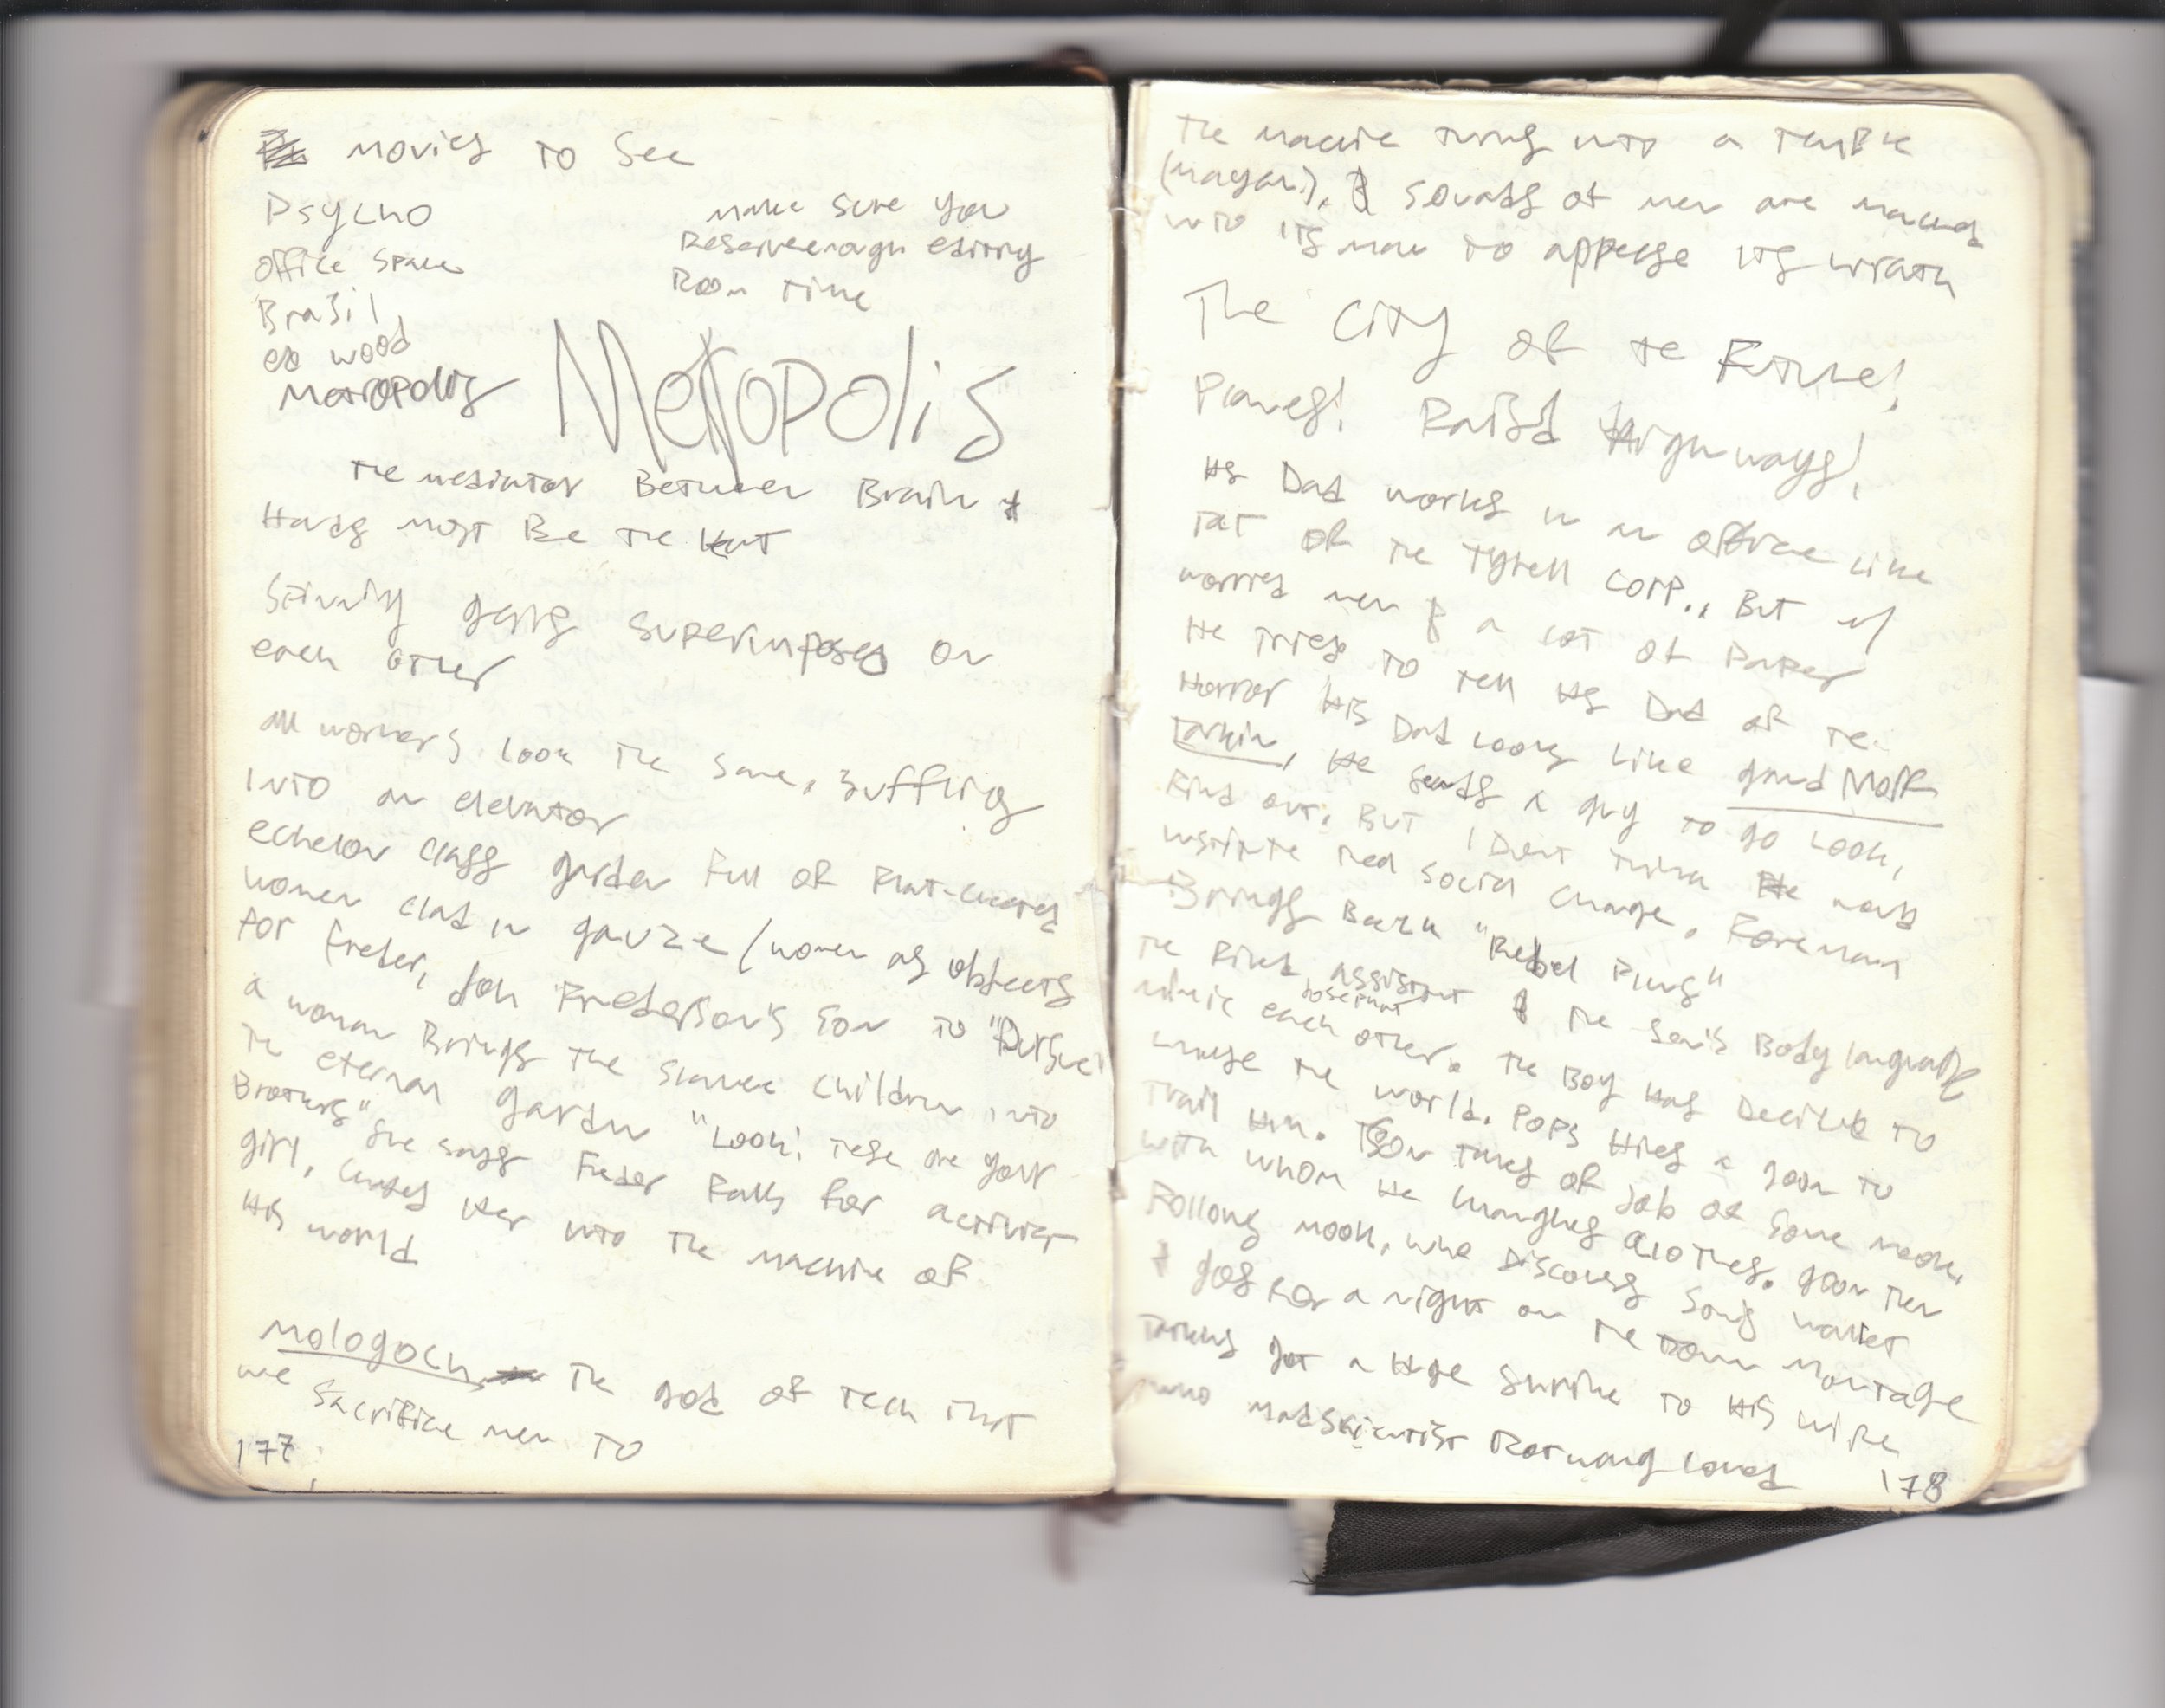 movies to See
Psycho
Office Space
Brazil
ed wood
Metropolis
make sure you
Reserve enough editing
Room time
Metropolis
The mediator Between Brain &
Hands must Be the Heart
Spinning gears superimposed on
each other
All workers look the same, suffling
into an elevator
echelon class garden full of flat-chested
women clad in gauze (women as objects
for freder, Joh Frederson's son to "Pursue"
a woman Brings the children into
the eternal garden "Look! these are your
Brothers" she says Freder falls for activist
girl, chases Her into the machine of
His world
Mologoch The god of tech that
we sacrifice men to
177
The machine turns into a temple
(mayan?), squads of men are marched
into its maw to appease its wrath
The City of the Future!
Planes! Raised Highways!
His Dad works in an office like
that of the Tyrell Corp., But w/
worried men & a lot of Paper
He tries to tell His Dad of the
Horror His Dad looks like grand Moff
Tarkin, He sends a guy to go look,
find out. But I Don't think He wants
real social change. Foreman
Brings Back "Rebel Plans"
The fired assistant & the son's Body language
Josephat
mimic each other. The Boy Has Decided to
change the world. Pops Hires a goon to
Trail Him. Son takes of job of some mook,
with whom He changes clothes. goon then
follows mook, who Discovers son's wallet
& goes for a night on the town montage
got a Huge Shrine to His wife
who Mad Scientist Rotwang loved
178